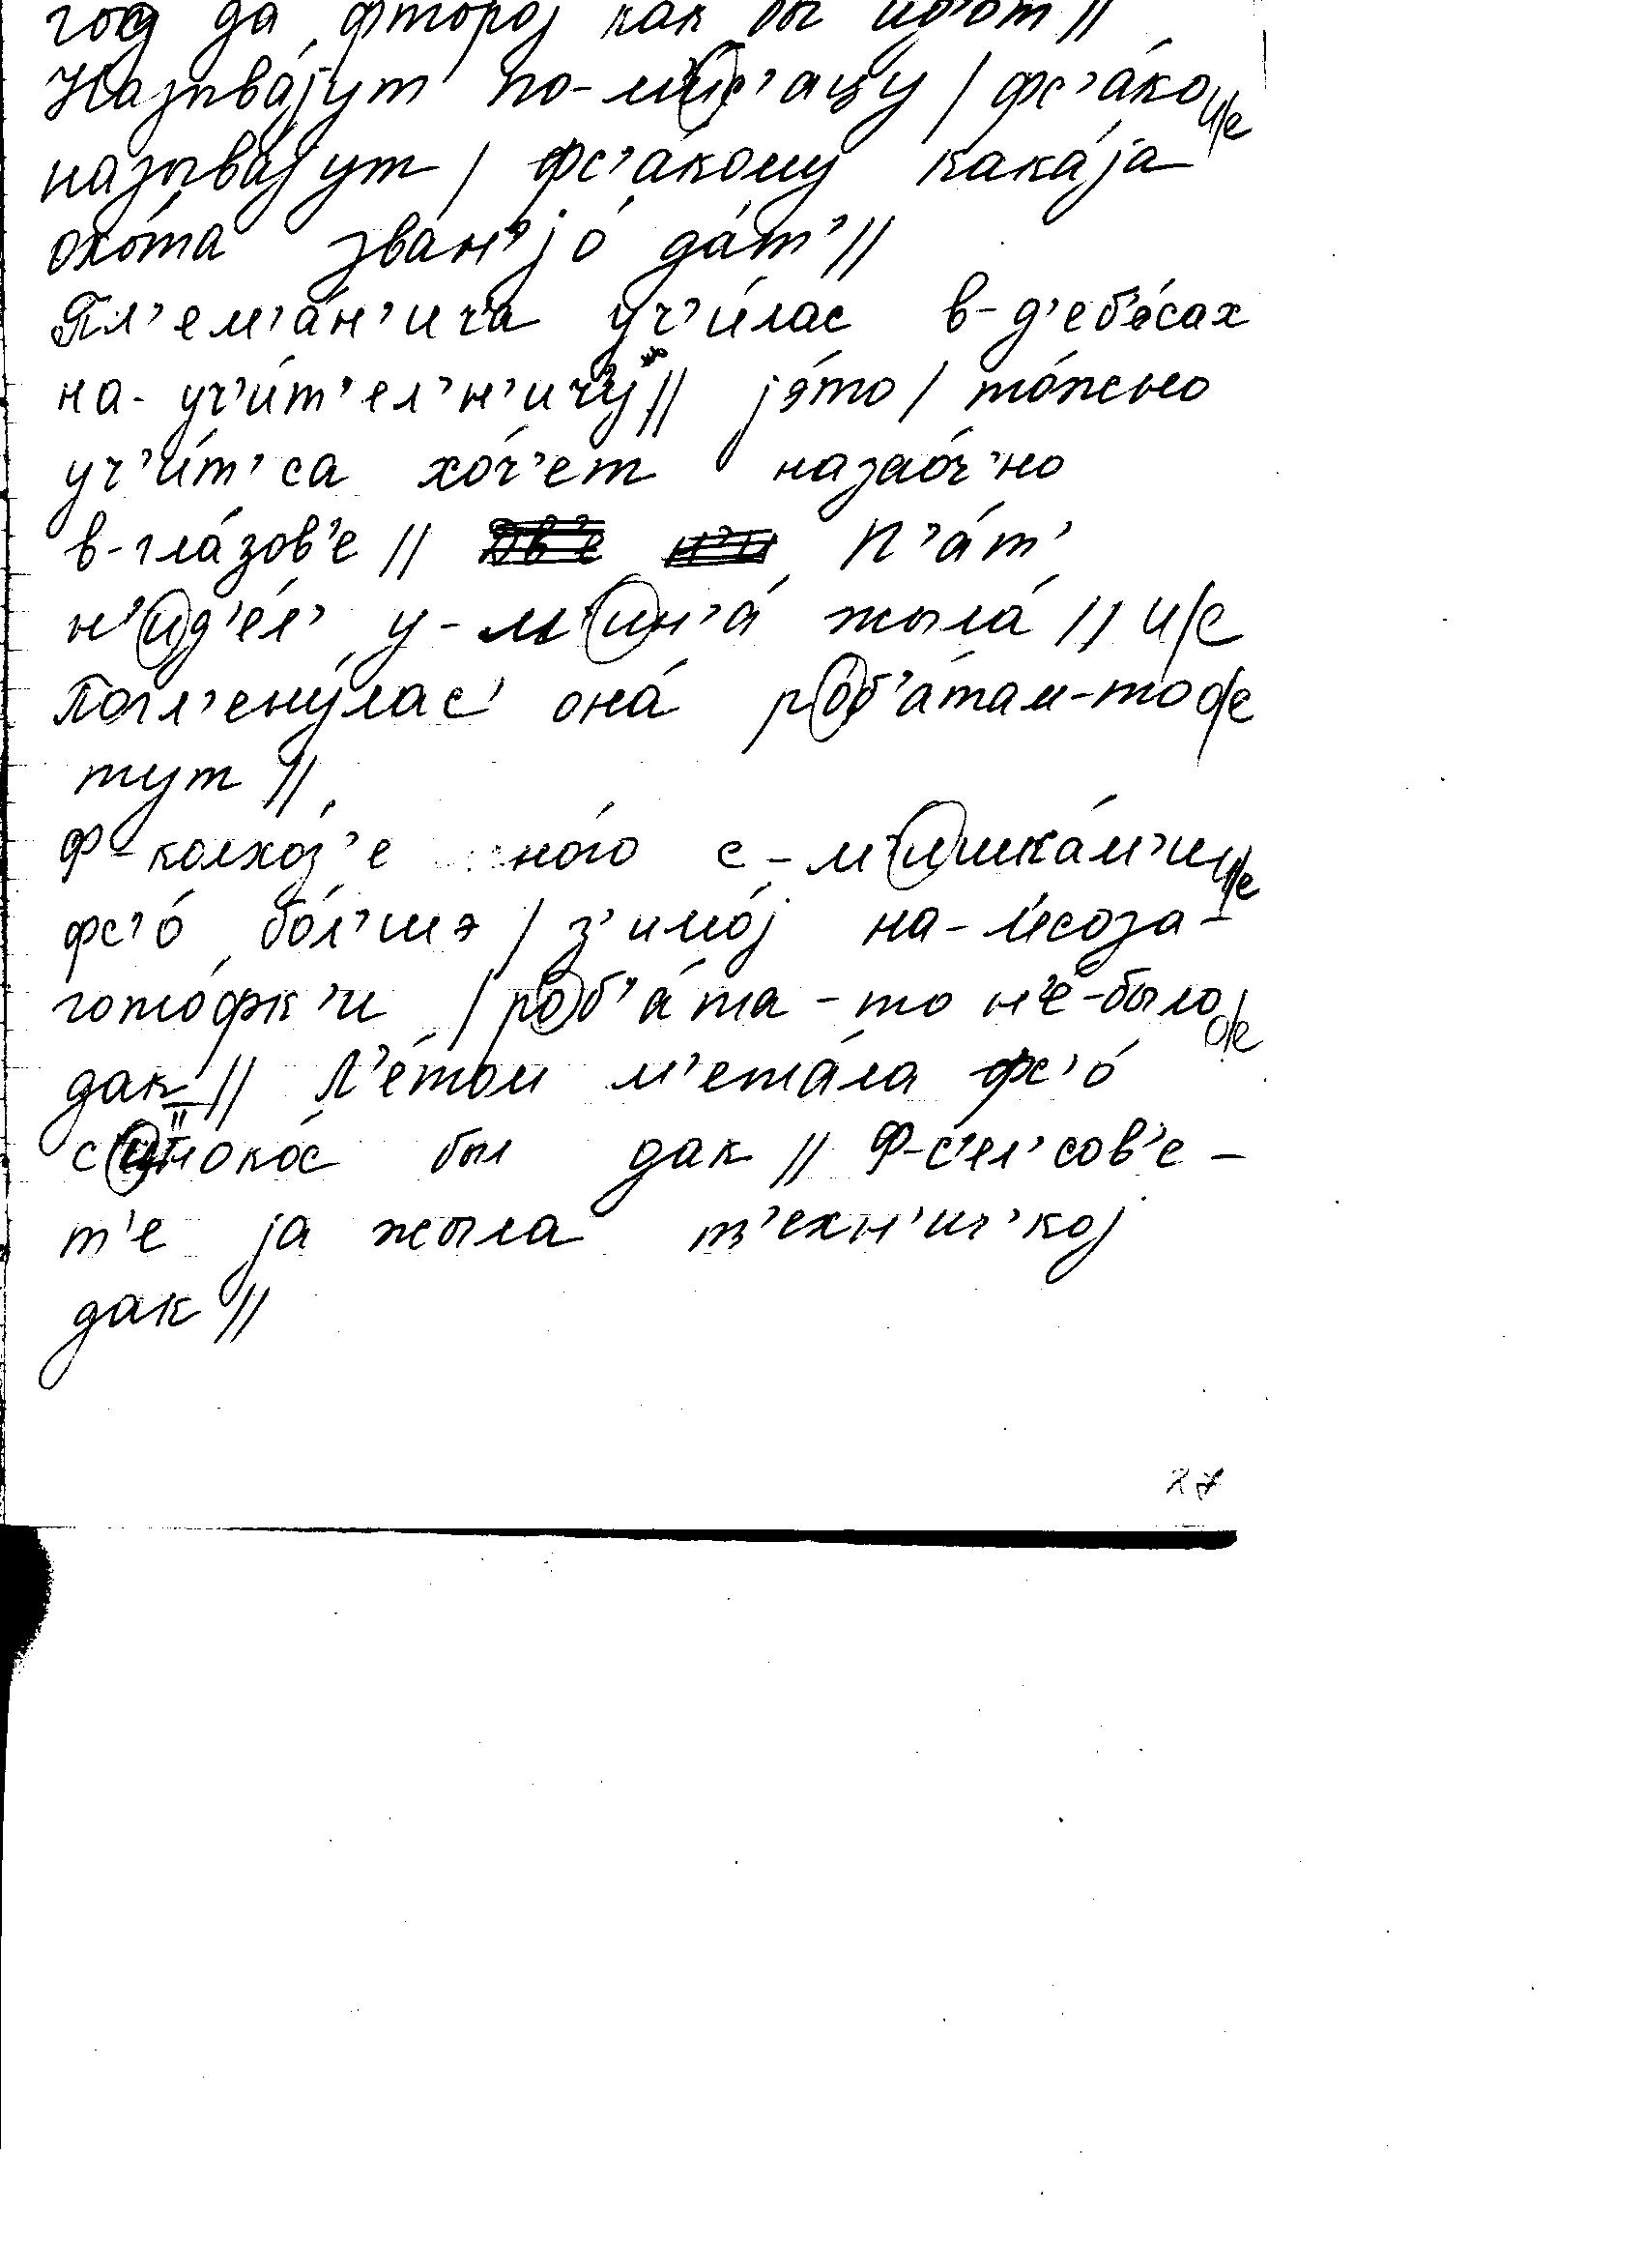 год да фторој как бы ид'от //
Называ́јут по-м'и́с'ацу / фс'а́ко и/е
называ́јут / фс'а́кому кака́ја
охо́та зва́н'јо́ да́т' //
Пл'ем'а́н'ича уч'и́лас в-д'еб'о́сах
на-уч'и́т'ел'н'ичу // јэ́то / то́жыо
уч'и́т'са хо́ч'ет назао́ч'но
в-гла́зов'е // П'а́т'
н'ид'е́л' у-м'ин'а́ жыла́ // и/е
Погл'ену́лас' она́ роб'а́там-то о/е
тут //
Ф-колхо́з'е но́го с-м'ишка́м'и и/е
фс'о́ бо́л'шэ / з'имо́ј на-м'асоза-
гото́фк'и / роб'а́та-то н'е́-было о/е
дак // Л'е́том м'ета́ла фс'о́
с'иноко́с был дак // Ф-с'ел'сов'е-
т'е ја жыла т'ехн'ич'кој
дак //
27